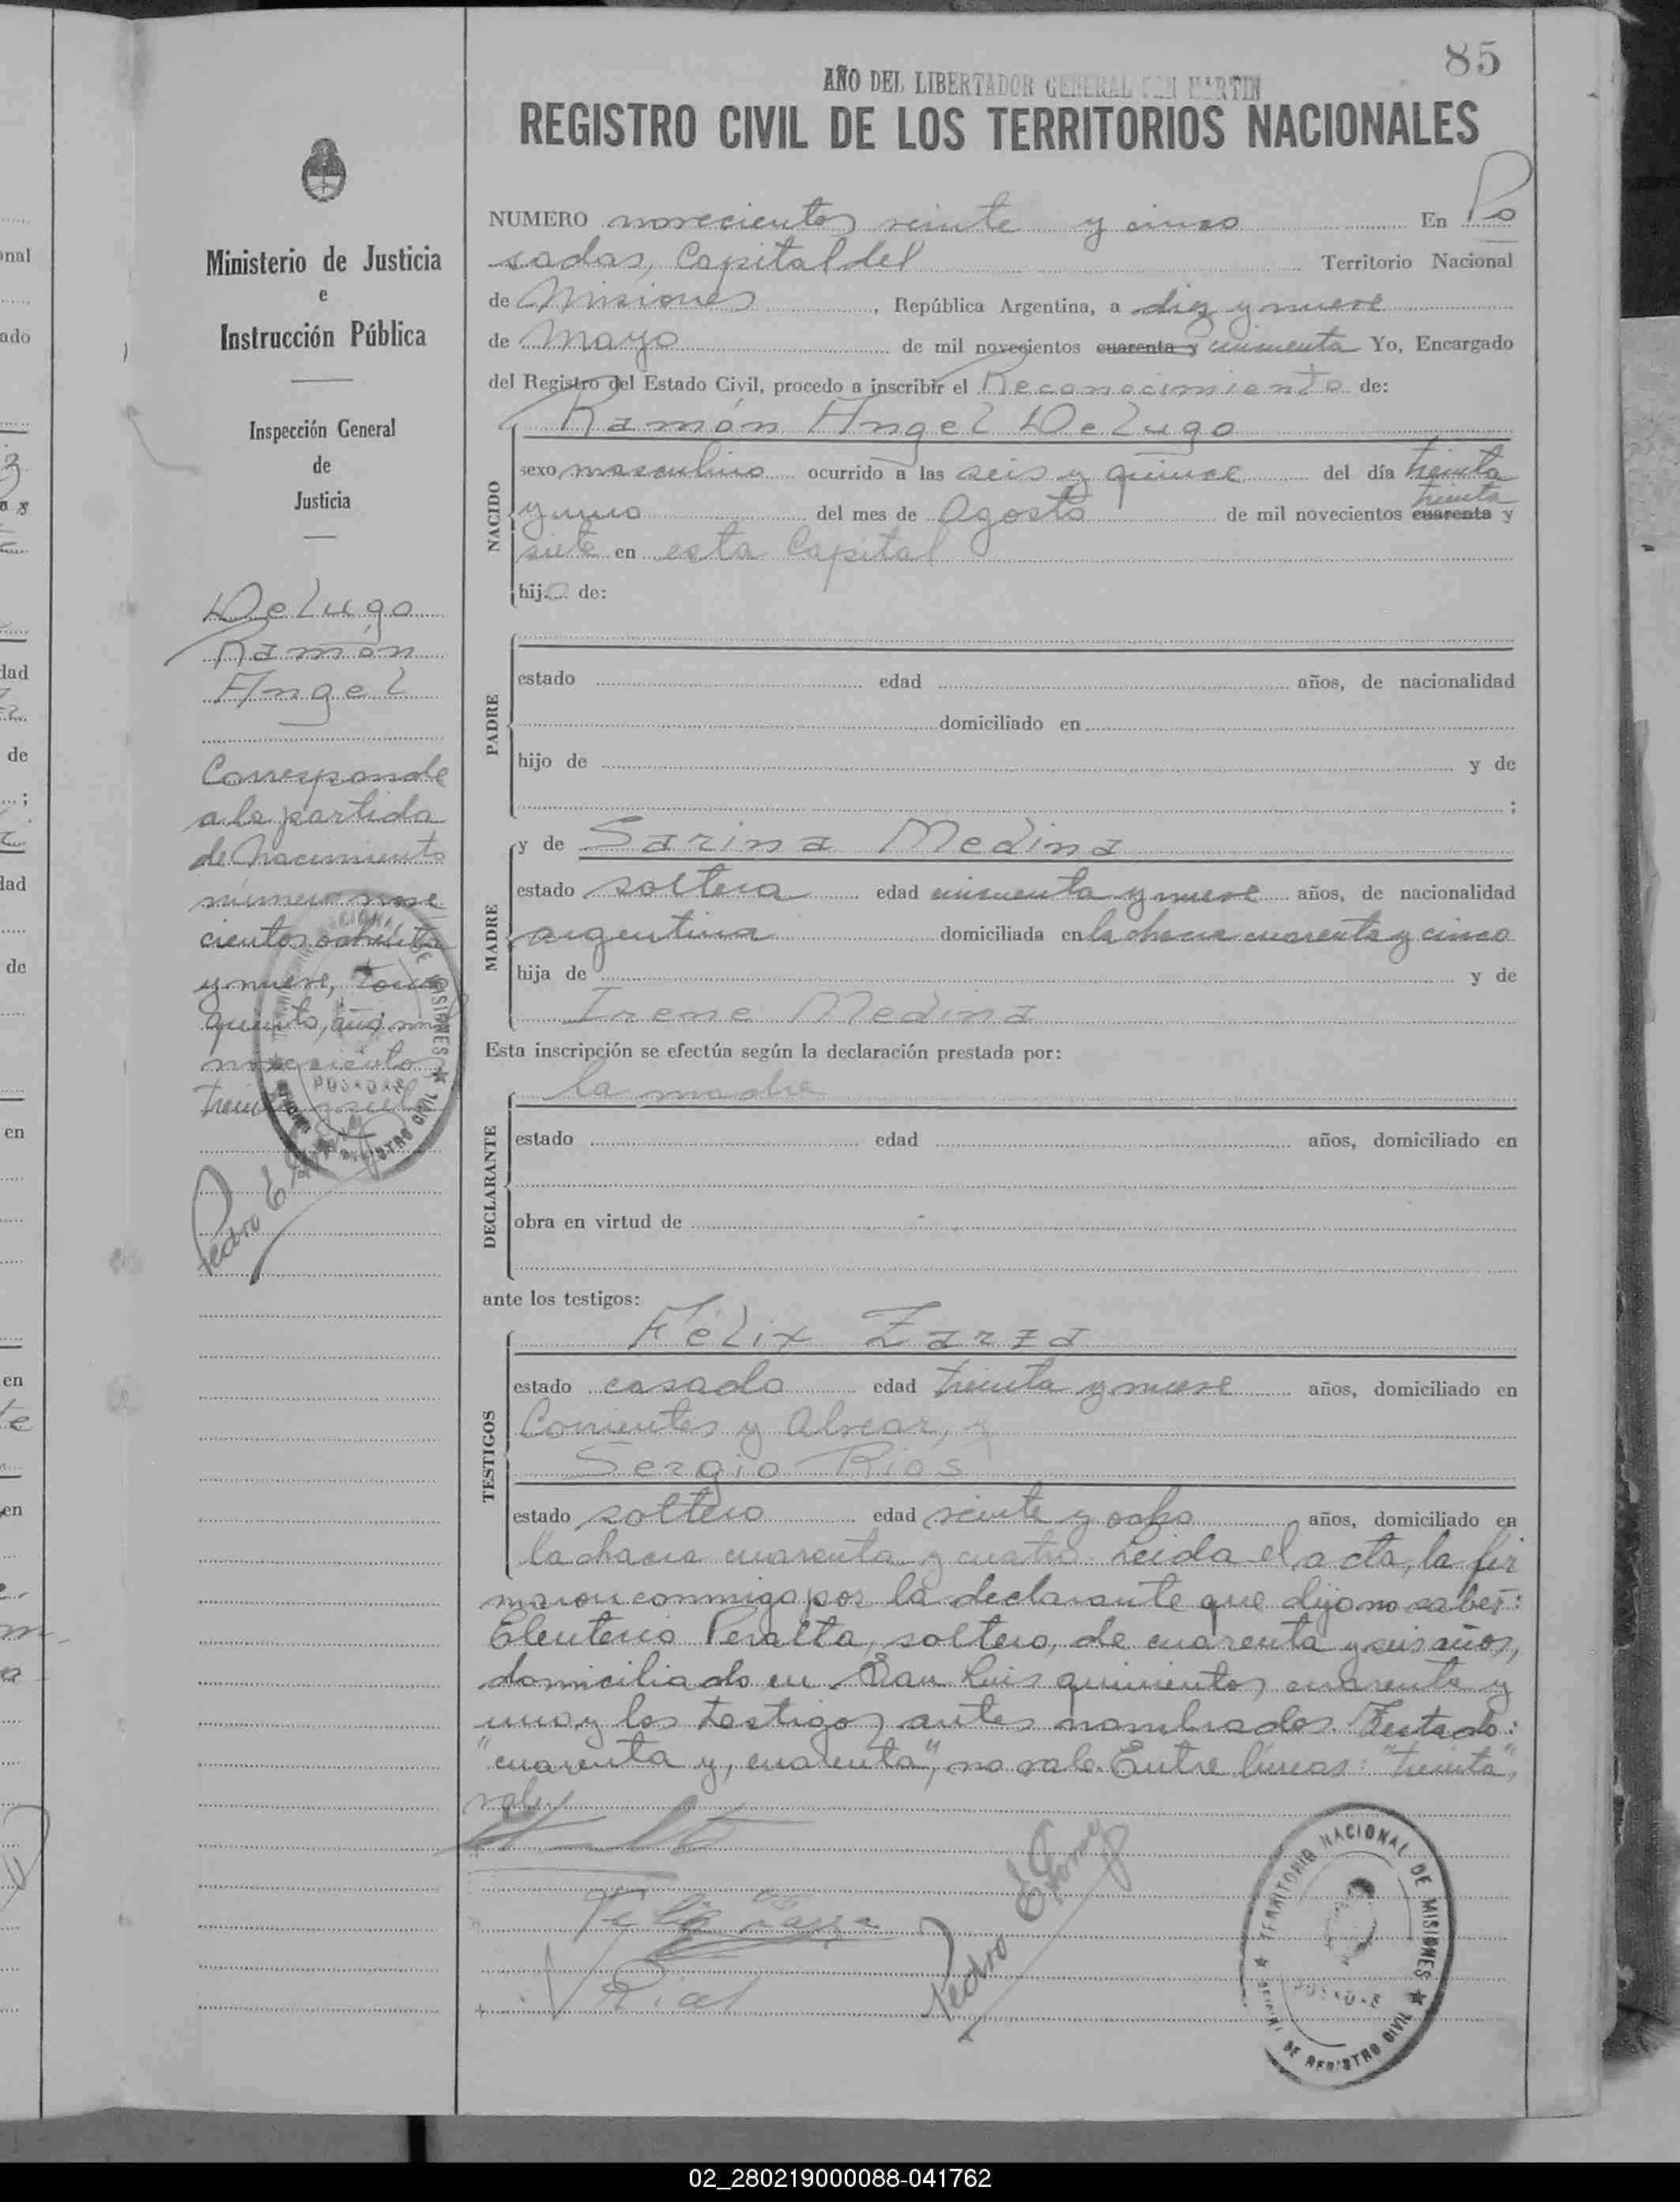 85
AÑO DEL LIBERTADOR GENERAL SAN MARTIN
REGISTRO CIVIL DE LOS TERRITORIOS NACIONALES
Ministerio de Justicia
e
Instrucción Pública
Inspección General
de
Justicia
De Lugo
Ramón
Angel
Corresponde
a la partida
de Nacimiento
número nove
cientos ochenta
y nueve, tomo
quinto, año mil
novecientos
treinta y siete
Pedro E.
NUMERO novecientos veinte y cinco En Po
sadas, Capital del Territorio Nacional
de Misiones, República Argentina, a diez y nueve
de Mayo de mil novecientos cuarenta y cincuenta Yo, Encargado
del Registro del Estado Civil, procedo a inscribir el Reconocimiento de:
Ramón Angel De Lugo
NACIDO
sexo masculino ocurrido a las seis y quince del día treinta
treinta
y uno del mes de Agosto de mil novecientos cuarenta y
siete en esta Capital
hijo de:
PADRE
estado edad años, de nacionalidad
domiciliado en
hijo de y de
;
MADRE
y de Sarina Medina
estado soltera edad cincuenta y nueve años, de nacionalidad
argentina domiciliada en la chacra cuarenta y cinco
hija de y de
Irene Medina
Esta inscripción se efectúa según la declaración prestada por:
DECLARANTE
la madre
estado edad años, domiciliado en
obra en virtud de
ante los testigos:
TESTIGOS
Félix Zarza
estado casado edad treinta y nueve años, domiciliado en
Corrientes y Alvear, y
Sergio Rios
estado soltero edad veinte y ocho años, domiciliado en
la chacra cuarenta y cuatro. Leída el acta, la fir
maron conmigo por la declarante que dijo no saber:
Eleuterio Peralta, soltero, de cuarenta y seis años,
domiciliado en San Luis quinientos cuarenta y
uno y los testigos antes nombrados. Testado:
"cuarenta y, cuarenta", no vale. Entre líneas: "treinta",
vale.
Felix Zarza
Rios
Pedro E.
TERRITORIO NACIONAL DE MISIONES
POSADAS
DE REGISTRO CIVIL
02_280219000088-041762